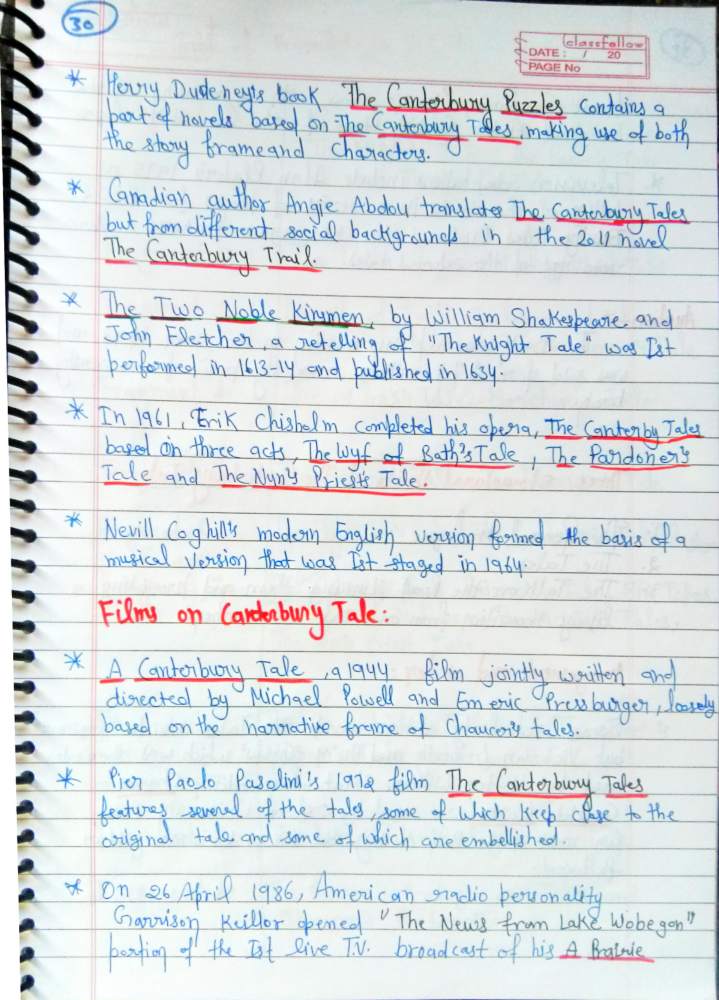 30
classfellow
DATE: / 20
PAGE No
* Henry Dudeney's book The Canterbury Puzzles contains a
part of novels based on The Canterbury Tales, making use of both
the story frame and characters.
* Canadian author Angie Abdou translates The Canterbury Tales
but from different social backgrounds in the 2011 novel
The Canterbury Trail.
* The Two Noble Kinsmen, by William Shakespeare and
John Fletcher, a retelling of "The Knight Tale" was Ist
performed in 1613-14 and published in 1634.
* In 1961, Erik Chisholm completed his opera, The Canterby Tales
based on three acts, The Wyf of Bath's Tale, The Pardoner's
Tale and The Nun's Priests Tale.
* Nevill Coghill's modern English version formed the basis of a
musical version that was Ist staged in 1964.
Films on Canterbury Tale:
* A Canterbury Tale, a 1944 film jointly written and
directed by Michael Powell and Emeric Pressburger, loosely
based on the narrative frame of Chaucer's tales.
* Pier Paolo Pasolini's 1972 film The Canterbury Tales
features several of the tales, some of which keep close to the
original tale and some of which are embellished.
* On 26 April 1986, American radio personality
Garrison Keillor opened "The News from Lake Wobegon"
portion of the Ist live T.V. broadcast of his A Prairie